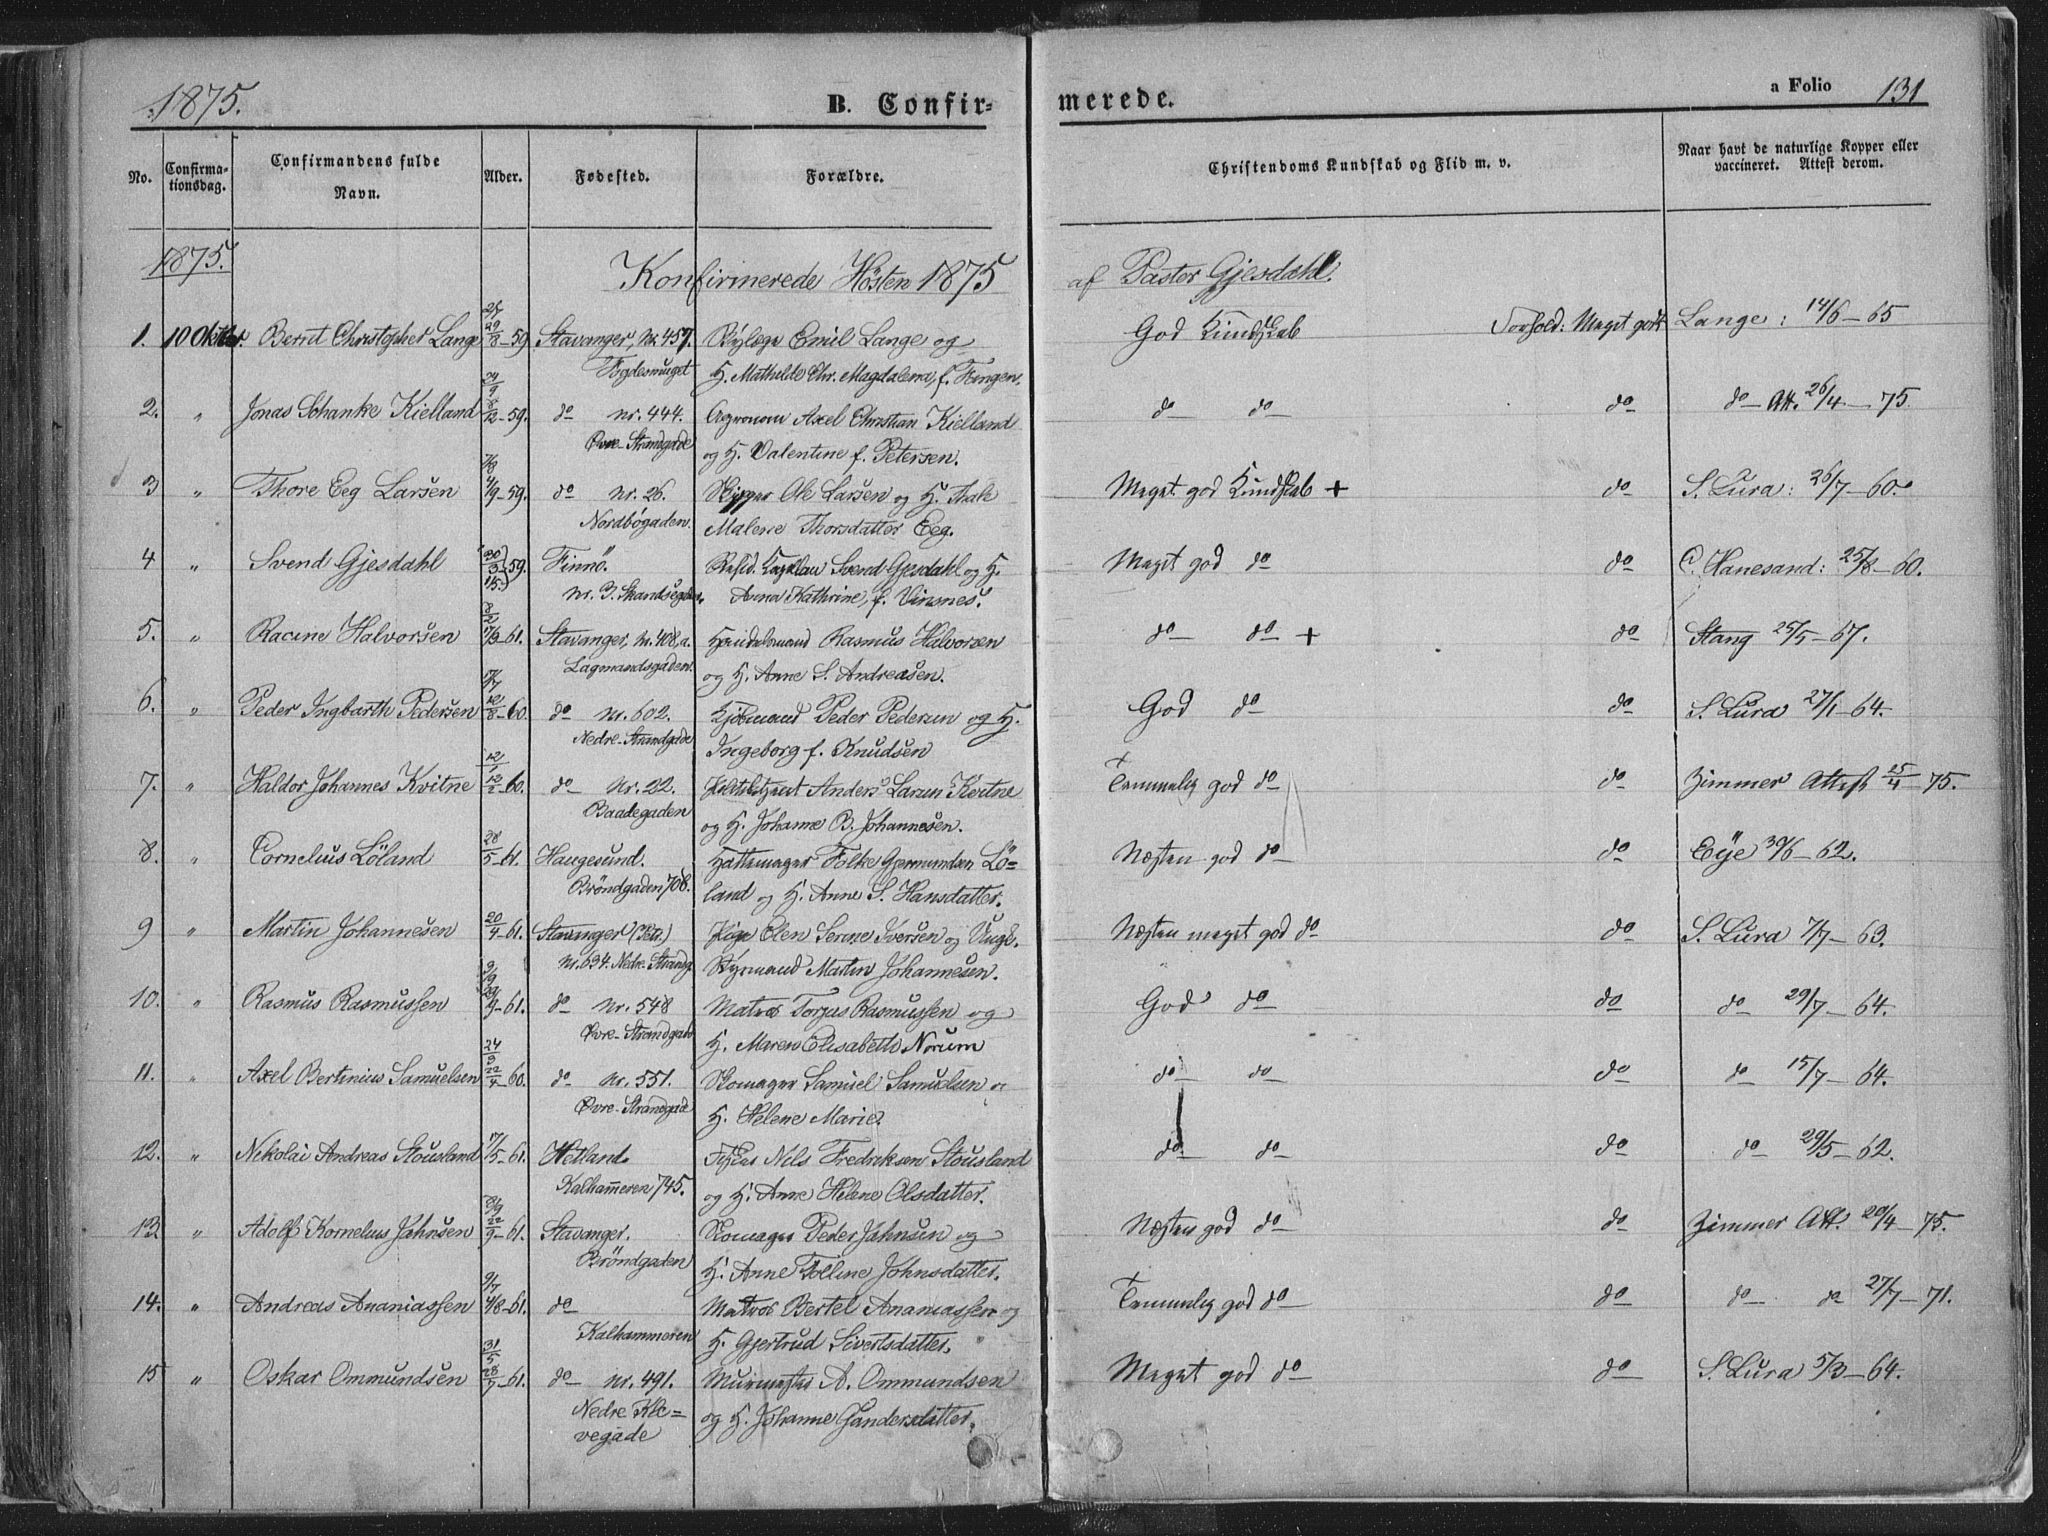 1875. B. Confir= merede. a Folio 131
No. Confirma-tionsdag. Confirmandens fulde Navn. Alder. Fødested. Forældre. Christendoms Kundskab og Flid m. v. Naar havt de naturlige Kopper eller vaccineret. Attest derom.
1875. Konfirmerede Hösten 1875 af Pastor Gjesdahl.
1. 10 Oktber Bernt Christopher Lange 29/8–59 Stavanger, Nr. 457. Emil Lange og God Kundskab Forhold: Meget godt Lange: 14/6–65
Fogdesmuget H. Mathilde Chr. Magdalena, f.
2. " Jonas Schanke Kielland 8/12–59. do nr. 444. Agronom Axel Christian Kielland do do do do Att. 26/4–75.
Øvre-Strandgade og H. Valentine f. Petersen.
3 " Thore Eeg Larsen 4/9–59. do nr. 26. Skipper Ole Larsen og H. Thale Meget god Kundskab + do S. Lura: 26/7–60.
Nordbögaden. Malene Thorsdatter Eeg.
4 " Svend Gjesdahl 30/3–59. Finnö. Resid. Kapellan Svend Gjesdahl og H. Meget god do do C. Hanesand: 25/8–60.
(15.) nr. 3. Skandsegaden. Anna Kathrine, f. Vinsnes.
5. " Racine Halvorsen 17/3–61. Stavanger, nr. 408, a. Handelsmand Rasmus Halvorsen do do + do Stang 25/5–67.
Lagmandsgaden. og H. Anne S. Andreasen.
6. " Peder Ingbarth Pedersen 12/8–60. do nr. 602. Kjøbmand Peder Pedersen og H. God do do S. Lura 27/1–64.
Nedre-Strandgade Ingeborg f. Knudsen
7. " Haldor Johannes Kvitne 12/2–60. do Nr. 22. Anders Larsen Kvitne Temmelig god do do Zimmer Attest 25/4–75.
Baadegaden og H. Johanne B. Johannesen.
8. " Cornelius Löland 28/5–61. Haugesund. Hattemager Folke Gjermundsen Lö= Næsten god do do Eÿe 30/6–62.
Bröndgaden 708. land og H. Anne S. Hansdatter.
9 " Martin Johannesen 20/4–61. Stavanger (Petr.) Pige Elen Serine Iversen og Ungk. Næsten meget god do do S. Lura 7/7–63.
nr. 634. Nedre-Strandg. Styrmand Martin Johannesen.
10. " Rasmus Rasmussen 29/9–61. do nr. 548 Matros Torjus Rasmussen og God do do do 29/7–64.
Øvre-Strandgade H. Maren Elisabeth Norum
11. " Axel Bertinius Samuelsen 22/4–60. do nr. 551. Skomager Samuel Samuelsen og do do do do 15/7–64.
Øvre-Strandgade H. Helene Marie.
12. " Nikolai Andreas Stousland 17/5–61. Hetland. Nils Fredriksen Stousland do do do do 29/5–62.
Kalhammeren 745. og H. Anne Helene Olsdatter.
13 " Adolf Kornelius Jahnsen 22/9–61. Stavanger. Skomager Peder Jahnsen og Næsten god do do Zimmer Att. 20/4–75.
Bröndgaden H. Anne Tolline Johnsdatter.
14. " Andreas Ananiassen 4/8–61. do Matros Bertel Ananiassen og Temmelig god do do do do 27/7–71.
Kalhammeren H. Gjertrud Sivertsdatter.
15 " Oskar Ommundsen 28/7–61. do nr. 491. Murmester A. Ommundsen Meget god do do S. Lura 5/3–64.
Nedre Kle= og H. Johanne Gandersdatter.
vegade